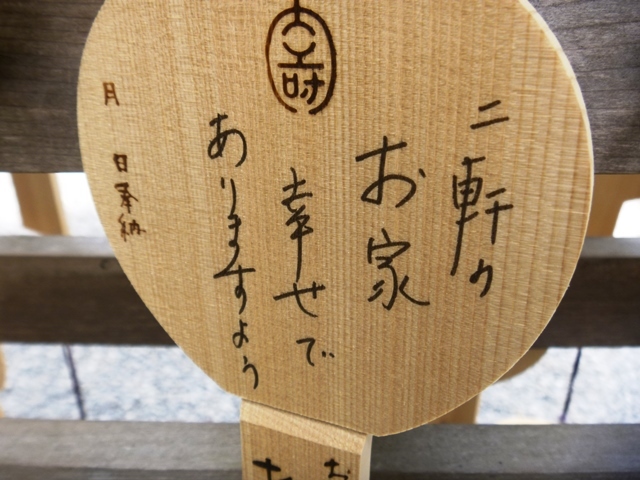 寿
二軒の
お家
幸せで
ありますよう
月 日奉納
お